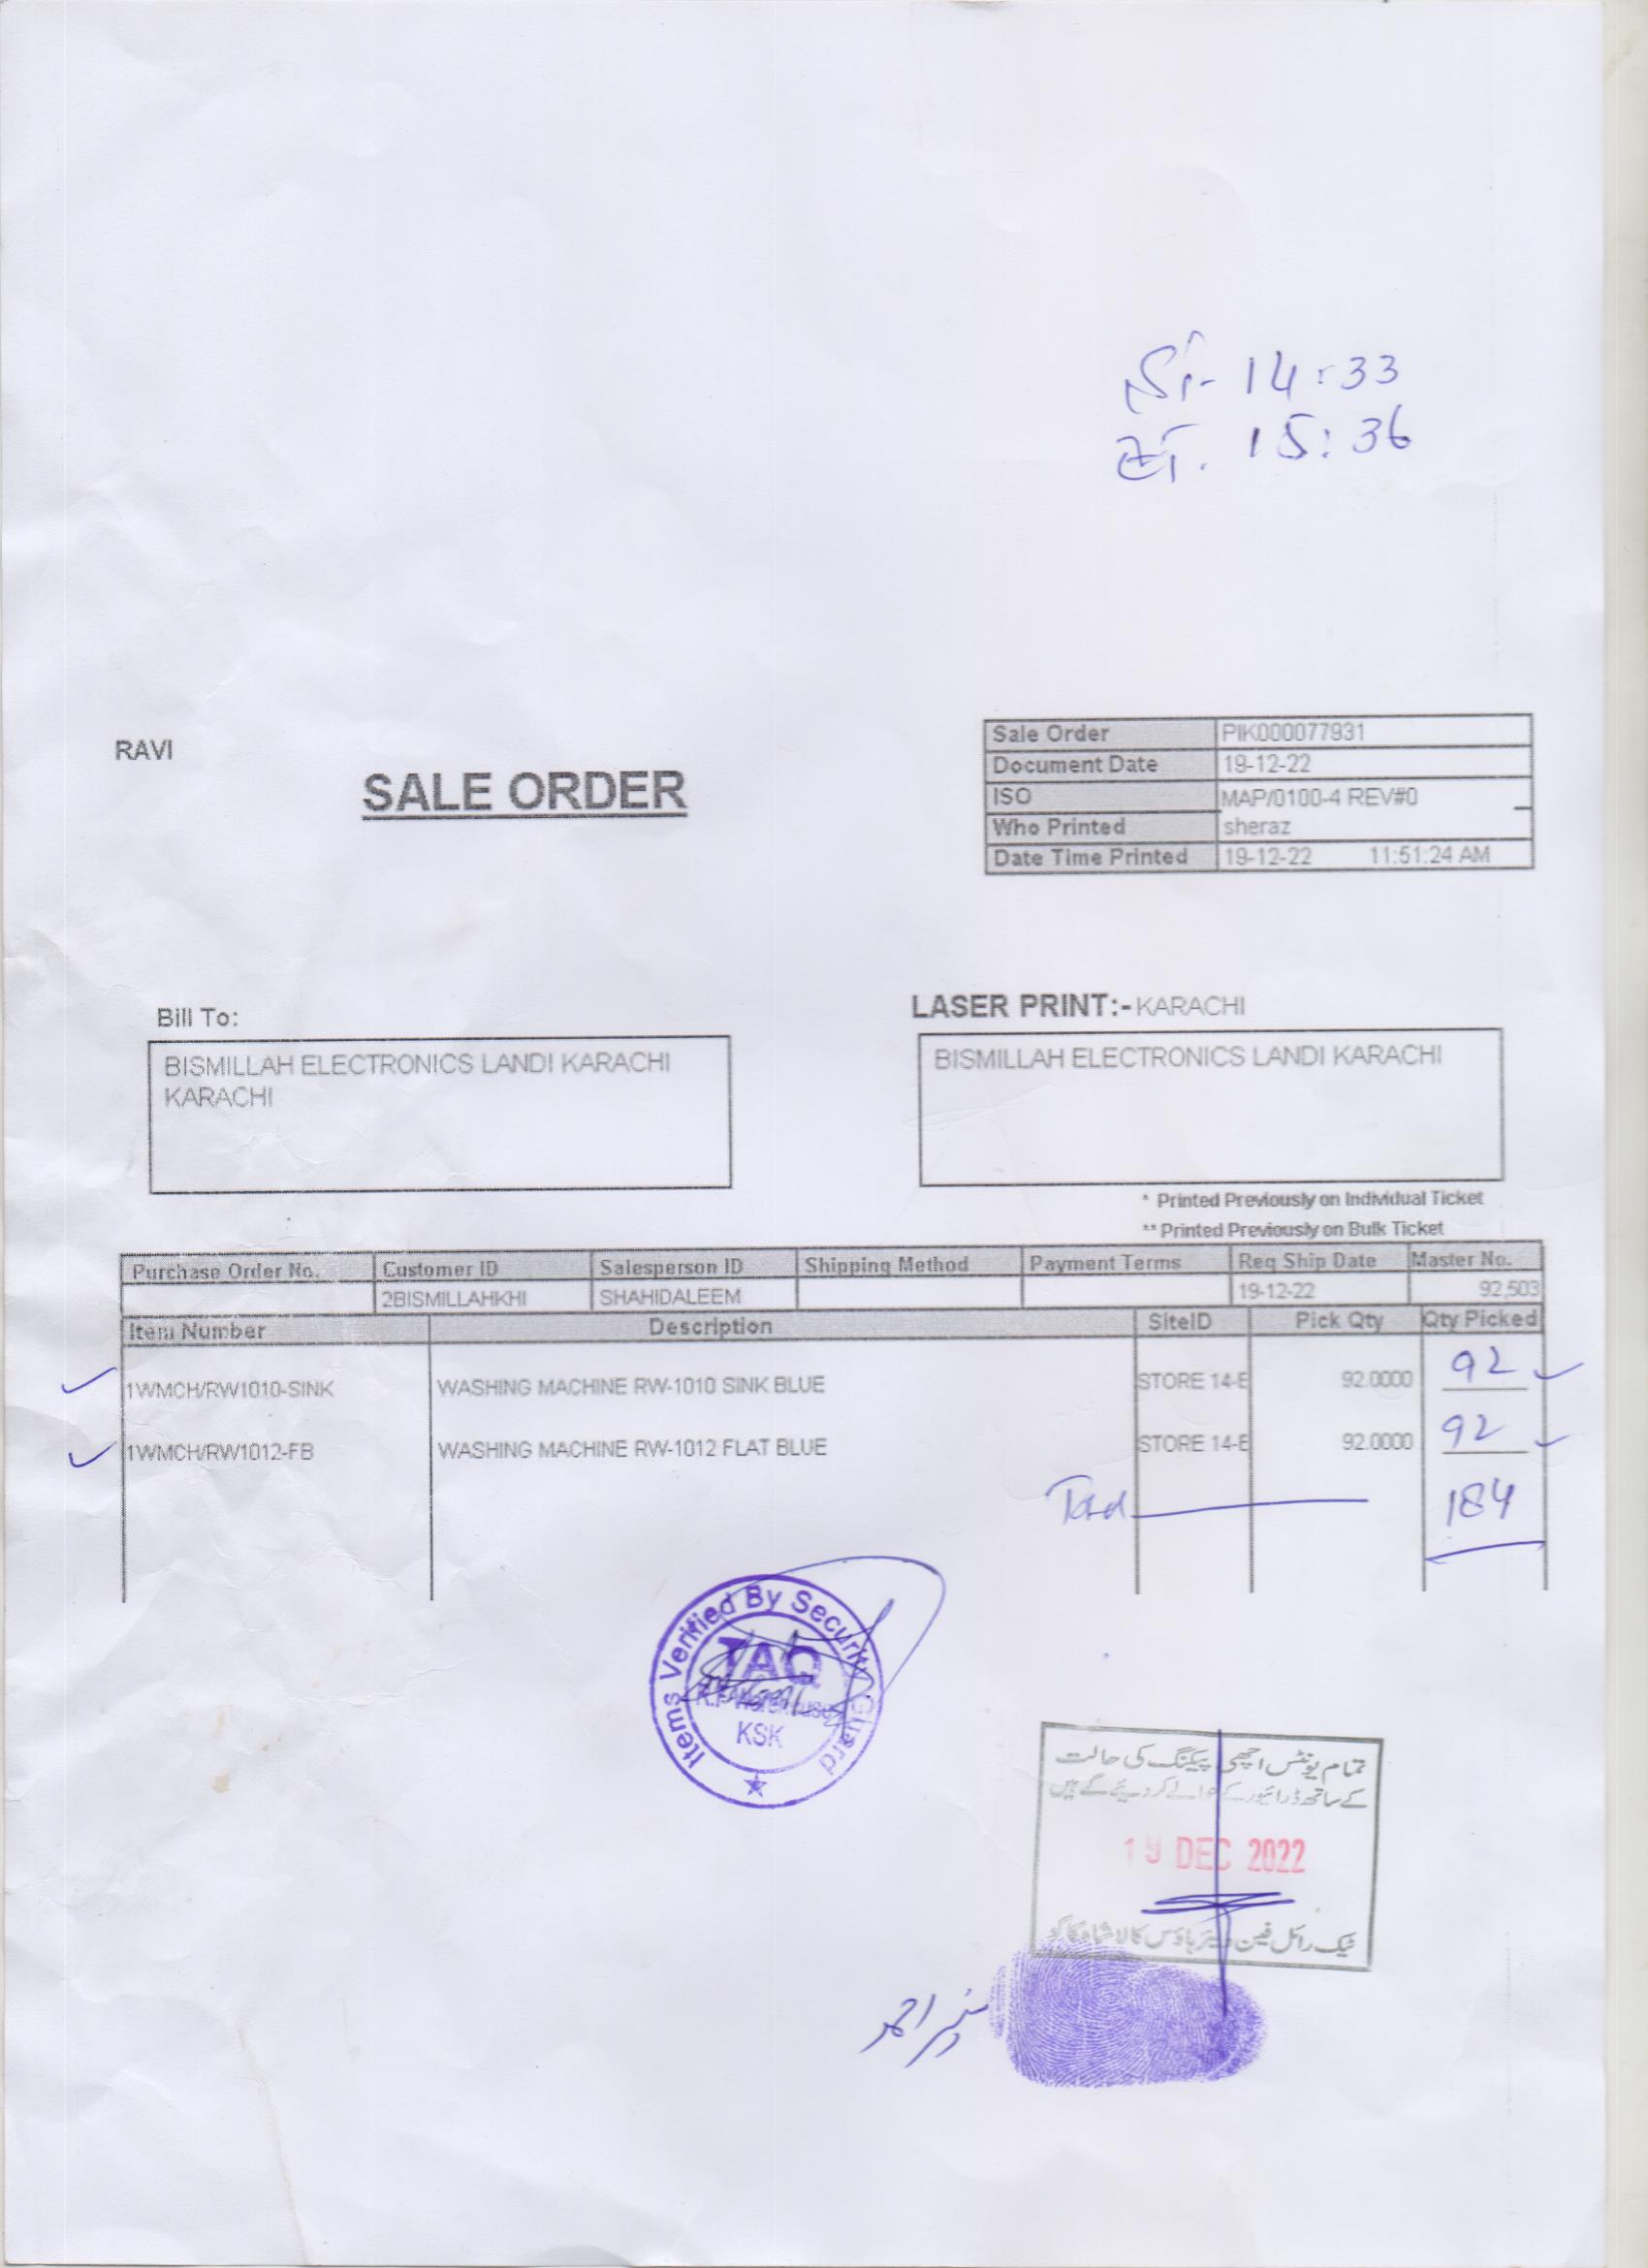 ST- 14:33
ET. 15:36
RAVI
SALE ORDER
Sale Order PIK000077931
Document Date 19-12-22
ISO MAP/0100-4 REV#0
Who Printed sheraz
Date Time Printed 19-12-22 11:51:24 AM
Bill To:
BISMILLAH ELECTRONICS LANDI KARACHI
KARACHI
LASER PRINT:- KARACHI
BISMILLAH ELECTRONICS LANDI KARACHI
* Printed Previously on Individual Ticket
** Printed Previously on Bulk Ticket
Purchase Order No. Customer ID Salesperson ID Shipping Method Payment Terms Req Ship Date Master No.
2BISMILLAHKHI SHAHIDALEEM 19-12-22 92,503
Item Number Description SiteID Pick Qty Qty Picked
1WMCH/RW1010-SINK WASHING MACHINE RW-1010 SINK BLUE STORE 14-E 92.0000 92
1WMCH/RW1012-FB WASHING MACHINE RW-1012 FLAT BLUE STORE 14-E 92.0000 92
Total 184
Items Verified By Security Guard
TAQ
R.F Warehouse
KSK
تمام یونٹس اچھی پیکنگ کی حالت
کے ساتھ ڈرائیور کے حوالے کر دیئے گئے ہیں
19 DEC 2022
ٹیک رائل فین ویئر ہاؤس کالا شاہ کاکو
منیر احمد